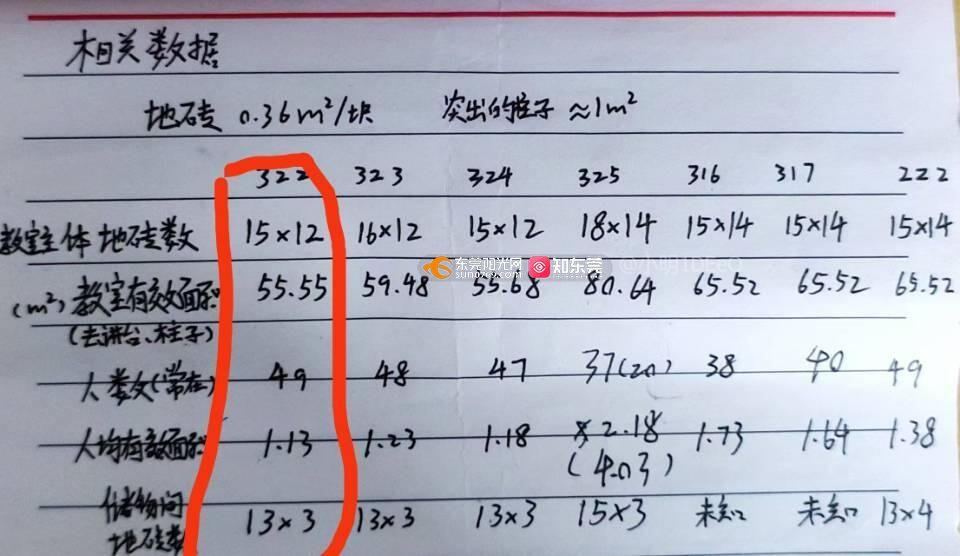 相关数据
地砖 0.36m²/块 突出的柱子 ≈1m²
322 323 324 325 316 317 222
教室主体地砖数 15×12 16×12 15×12 18×14 15×14 15×14 15×14
(m²) 教室有效面积 55.55 59.48 55.68 80.64 65.52 65.52 65.52
(去讲台、柱子)
人数(常在) 49 48 47 37(20) 38 40 49
人均有效面积 1.13 1.23 1.18 2.18 1.73 1.64 1.38
(4.03)
储物间 13×3 13×3 13×3 15×3 未知 未知 13×4
地砖数
东莞阳光网 知东莞
sun0769.com